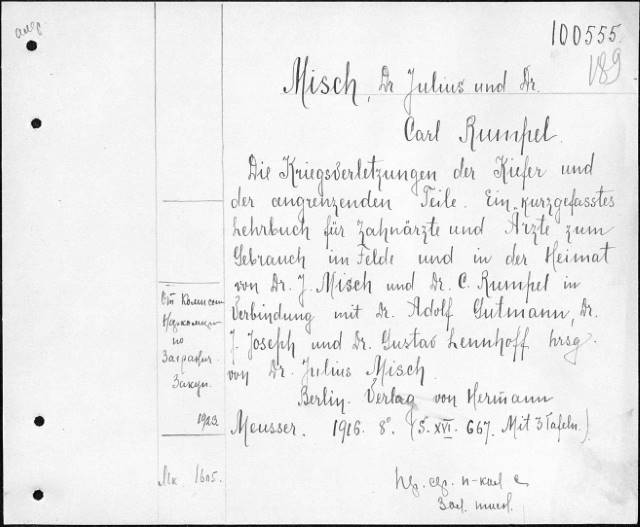 100555.
189
Misch, Dr Julius und Dr.
Carl Rumpel.
Die Kriegsverletzungen der Kiefer und
der angrenzenden Teile. Ein kurzgefasstes
Lehrbuch für Zahnärzte und Ärzte zum
Gebrauch im Felde und in der Heimat
von Dr. J. Misch und Dr. C. Rumpel in
Verbindung mit Dr. Adolf Gutmann, Dr.
J. Joseph und Dr. Gustav Lennhoff hrsg.
von Dr. Julius Misch.
Berlin. Verlag von Hermann
Meusser. 1916. 8°. (S. XVI. 667. Mit 3 Tafeln.)
От Комиссии
по
Заграничн.
Закуп.
1923
Мк. 1605.